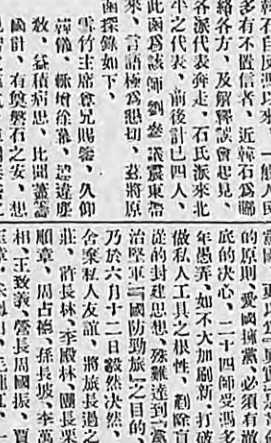 一般人民
多有不置信者、近韓石爲聯
絡各方、及解釋誤會起見、
各派代表奔走、石氏派來北
平之代表、前後計已四人、
此函爲該師劉參議震東帶
來、言語極爲懇切、茲將原
函探錄如下、
雪竹主席尊兄賜鑒、久仰
韓儀、慷增徐慕、遠違塵
敎、益積痗思、比聞藎籌
國計、有奠磐石之安、想
的原則、愛國擁黨、必須有澈
底的决心、二十四師受馮多
年愚弄、如不大加刷新、打破
做私人工具之根性、剷除盲
從的封建思想、殊難達到「黨
治堅軍」「國防勁旅」之目的、
乃於六月十二日毅然决然、
舍棄私人友誼、將旅長過之
莊、許長林、李殿林、團長渠
順章、周占德、孫長坡、李萬
相、王致義、營長周國振、賈